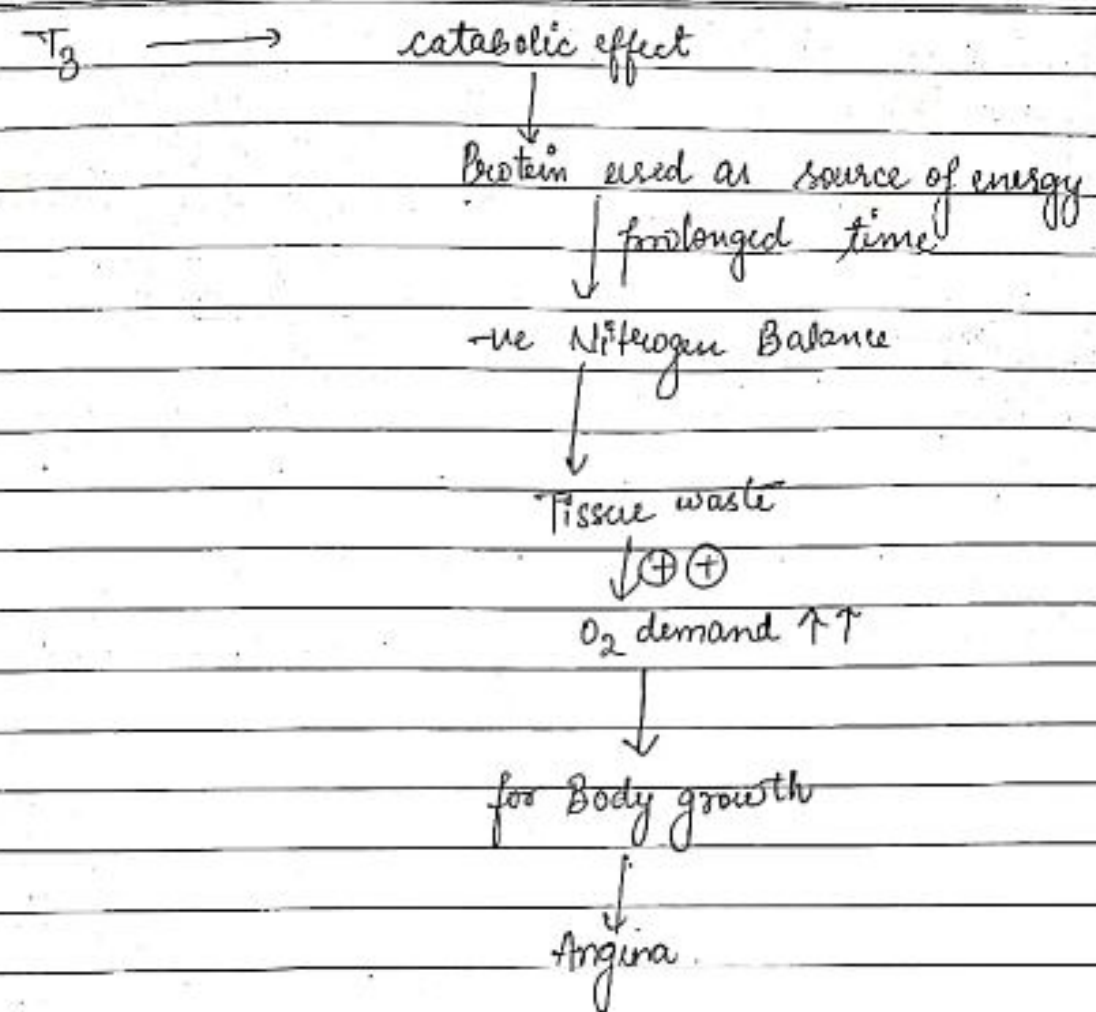 T3 → catabolic effect
↓
Protein used as source of energy
↓ prolonged time
-ve Nitrogen Balance
↓
Tissue waste
↓ ⊕ ⊕
O2 demand ↑↑
↓
for Body growth
↓
Angina.